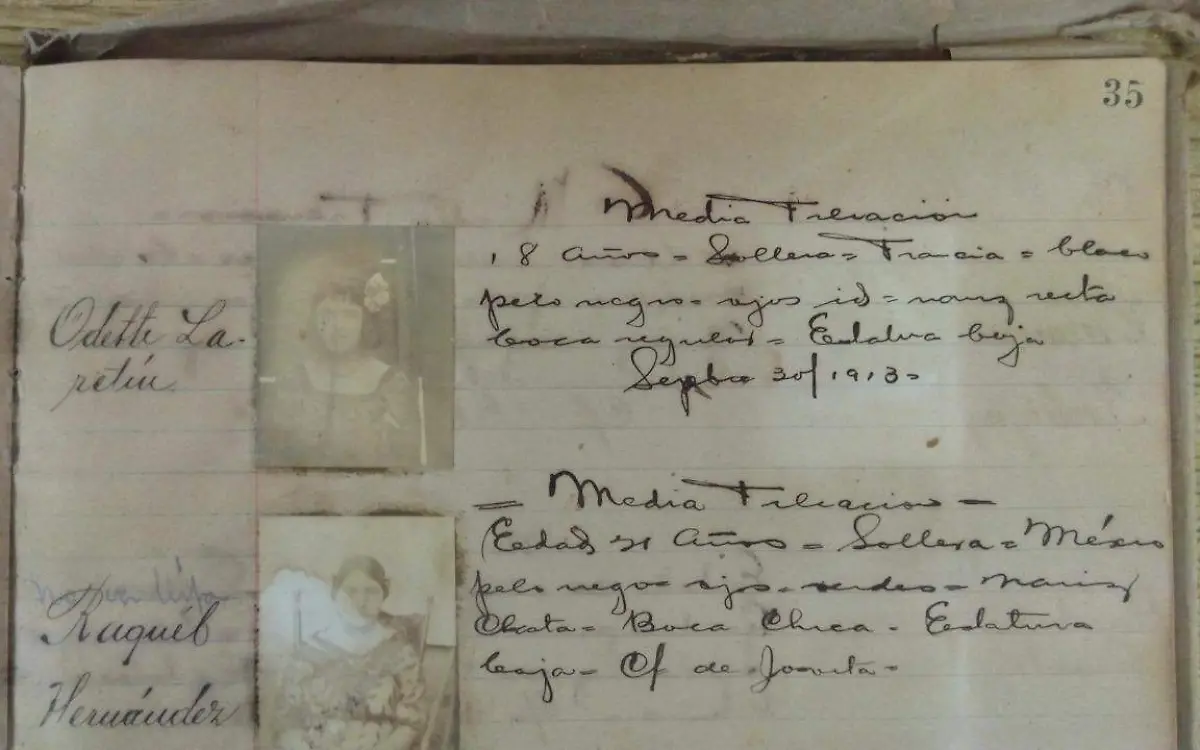 35
Media Filiacion
18 Años = Soltera = Francia = blanco
pelo negro = ojos id = nariz recta
boca regular = Estatura baja
Sepbre 30/1913=
Odette La-
retíu
= Media Filiacion =
Edad 21 Años = Soltera = México
pelo negro = ojos verdes = Nariz
Chata = Boca Chica = Estatura
baja = C/ de Jovita =
Raquél
Hernández